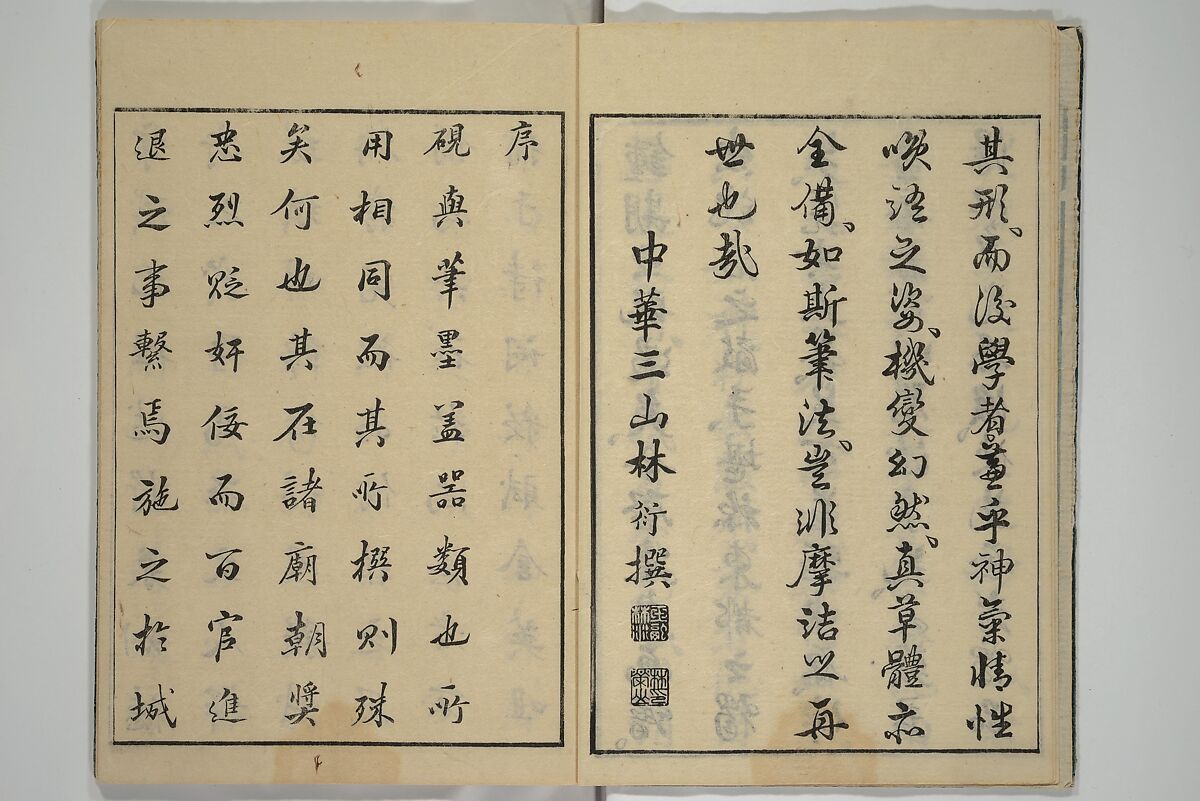 其形、而後學者蓋乎神氣情性
喚語之姿、機變幻然、真草體亦
全備、如斯筆法、豈非摩詰之再
世也哉
中華三山林衍撰
序
硯與筆墨盖器類也所
用相同而其所撰則殊
矣何也其在諸廟朝獎
忠烈貶奸佞而百官進
退之事繋焉施之於城